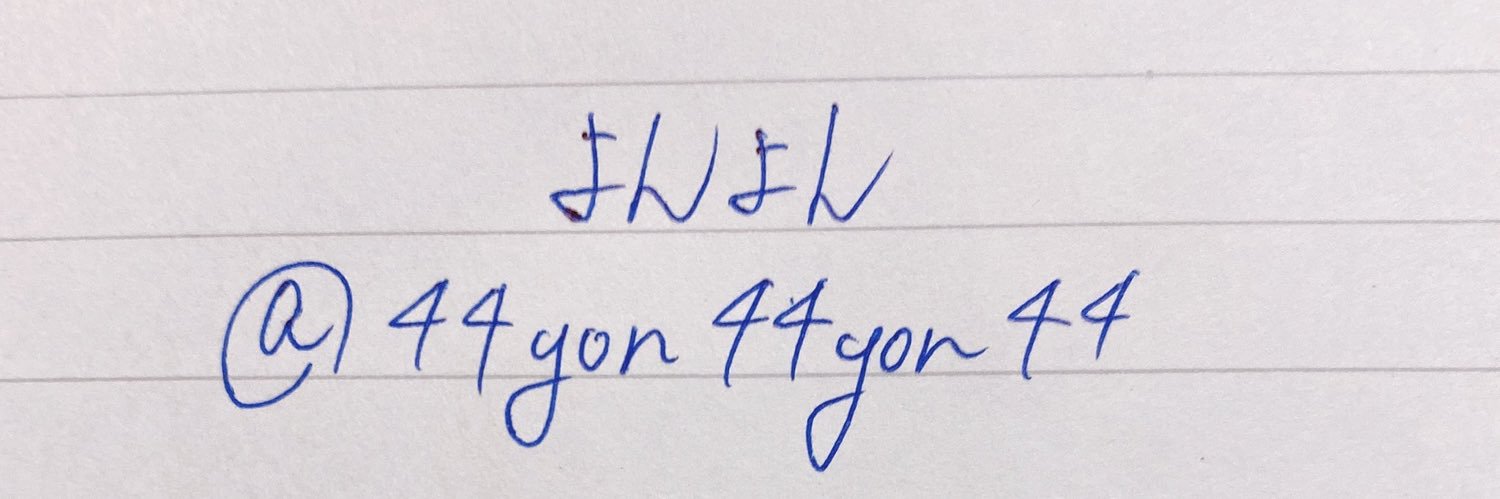 よんよん
@44yon44yon44